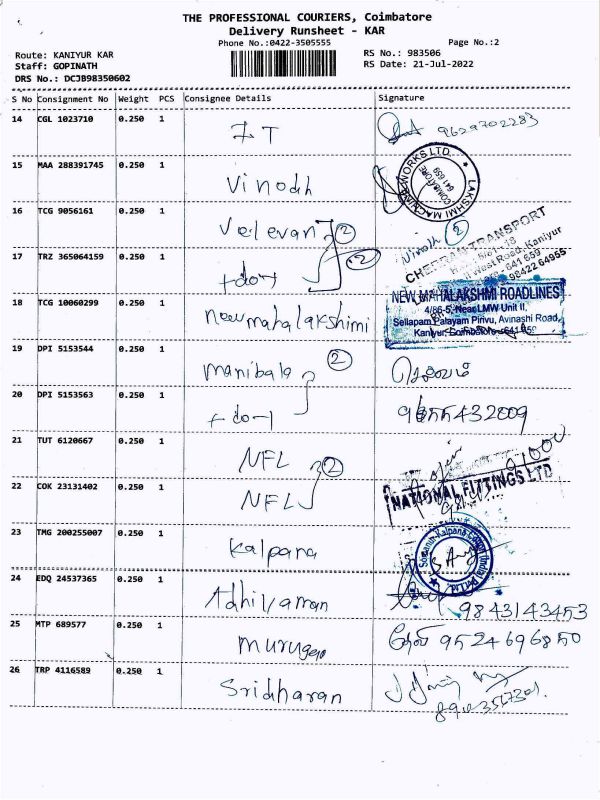 THE PROFESSIONAL COURIERS, Coimbatore
Delivery Runsheet - KAR
Phone No.:0422-3505555 Page No.:2
Route: KANIYUR KAR RS No.: 983506
Staff: GOPINATH RS Date: 21-Jul-2022
DRS No.: DCJB98350602
S No Consignment No Weight PCS Consignee Details Signature
14 CGL 1023710 0.250 1 9629702283
15 MAA 288391745 0.250 1 Vinodh
LAKSHMI MACHINE WORKS LTD. COIMBATORE 641 659
16 TCG 9056161 0.250 1 Velevan 2 Vinoth 2
17 TRZ 365064159 0.250 1 +do+ 2
CHERRAN TRANSPORT
West Road, Kaniyur
641 659
98422 64955
18 TCG 10060299 0.250 1 New mahalakshimi
NEW MAHALAKSHMI ROADLINES
4/86-5, Near LMW Unit II,
Sellapam Palayam Pirivu, Avinashi Road,
Kaniyur, Coimbatore - 641 659
19 DPI 5153544 0.250 1 manibala 2 செல்வம்
20 DPI 5153563 0.250 1 +do+ 9655432809
21 TUT 6120667 0.250 1 NFL 2
22 COK 23131402 0.250 1 NFL
NATIONAL FITTINGS LTD
23 TMG 200255007 0.250 1 Kalpana
24 EDQ 24537365 0.250 1 Adhiyaman 9843143453
25 MTP 689577 0.250 1 murugan 9524696850
26 TRP 4116589 0.250 1 Sridharan